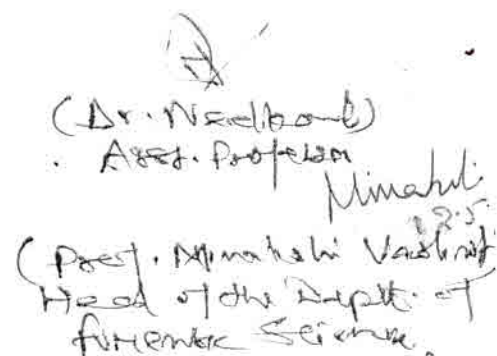 (Dr. Neelkamal)
Asst. Professor
Minakshi
(Prof. Minakshi Vashist)
Head of the Deptt. of
forensic Science.